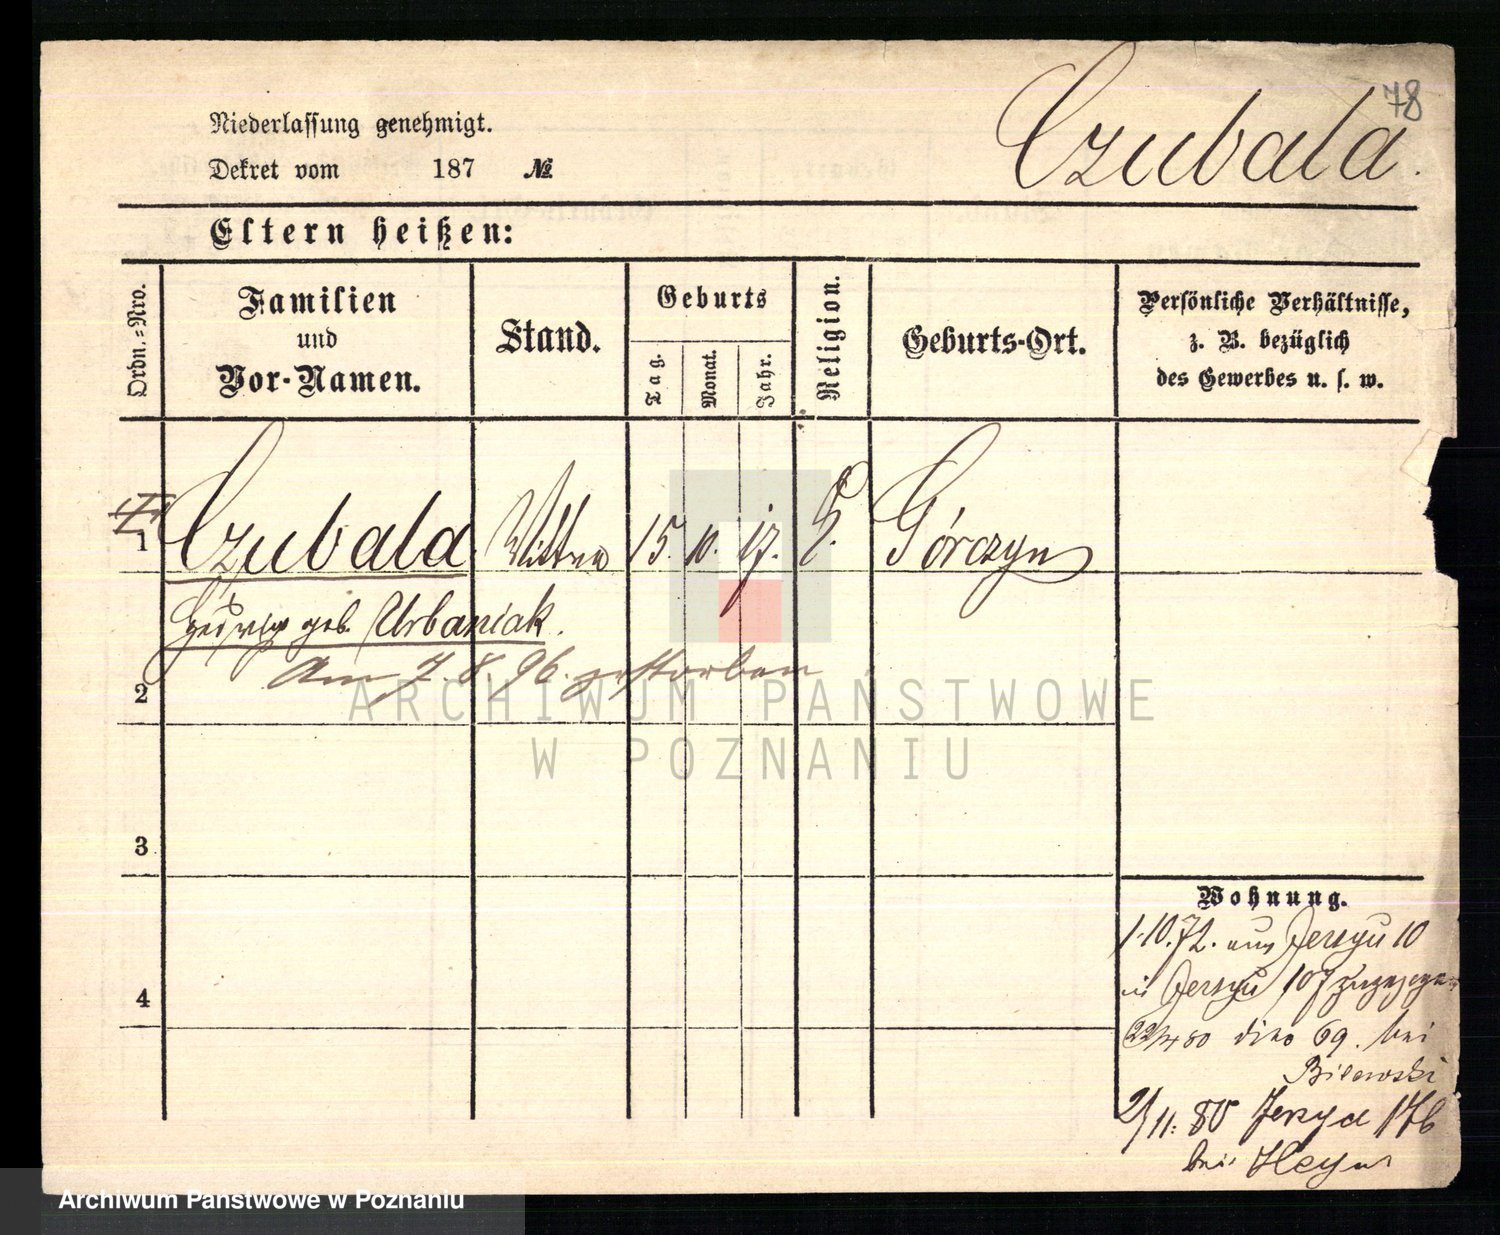 78
Czubala.
Niederlassung genehmigt.
Dekret vom 187 №
Eltern heißen:
Ordn.=Nro.
Familien
und
Vor-Namen.
Stand.
Geburts
Tag.
Monat.
Jahr.
Religion.
Geburts-Ort.
Persönliche Verhältnisse,
z. B. bezüglich
des Gewerbes u. s. w.
1 Czubala Wittwe 15. 10. 17. Górczyn
Hedwig geb. Urbaniak.
Am 7.8.96. gestorben
2
3
4
Wohnung.
1.10.72. aus Jersyce 10
in Jersyce 107 zugezogen
80 dito 69. bei
Bilewski
2/11. 80 Jerzyce 176
bei Heyn
ARCHIWUM PAŃSTWOWE
W POZNANIU
Archiwum Państwowe w Poznaniu